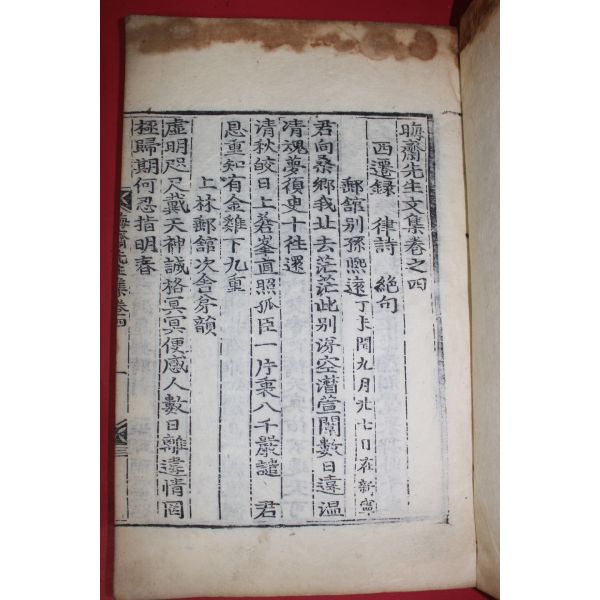 晦齋先生文集卷之四
西遷録 律詩 絶句
郵館別孫煕遠丁未閏九月廿七日在新寧
君向桑鄉我北去茫茫此別淚空潸萱闈數日違温
清魂夢須史十往還
清秋皎日上蒼峯直照孤臣一片衷八千嚴譴 君
恩重知有金雞下九重
上林郵館次舍弟韻
虛明咫尺戴天神誠格冥冥便感人數日離違情罔
極歸期何忍指明春
晦齋先生集卷四 一